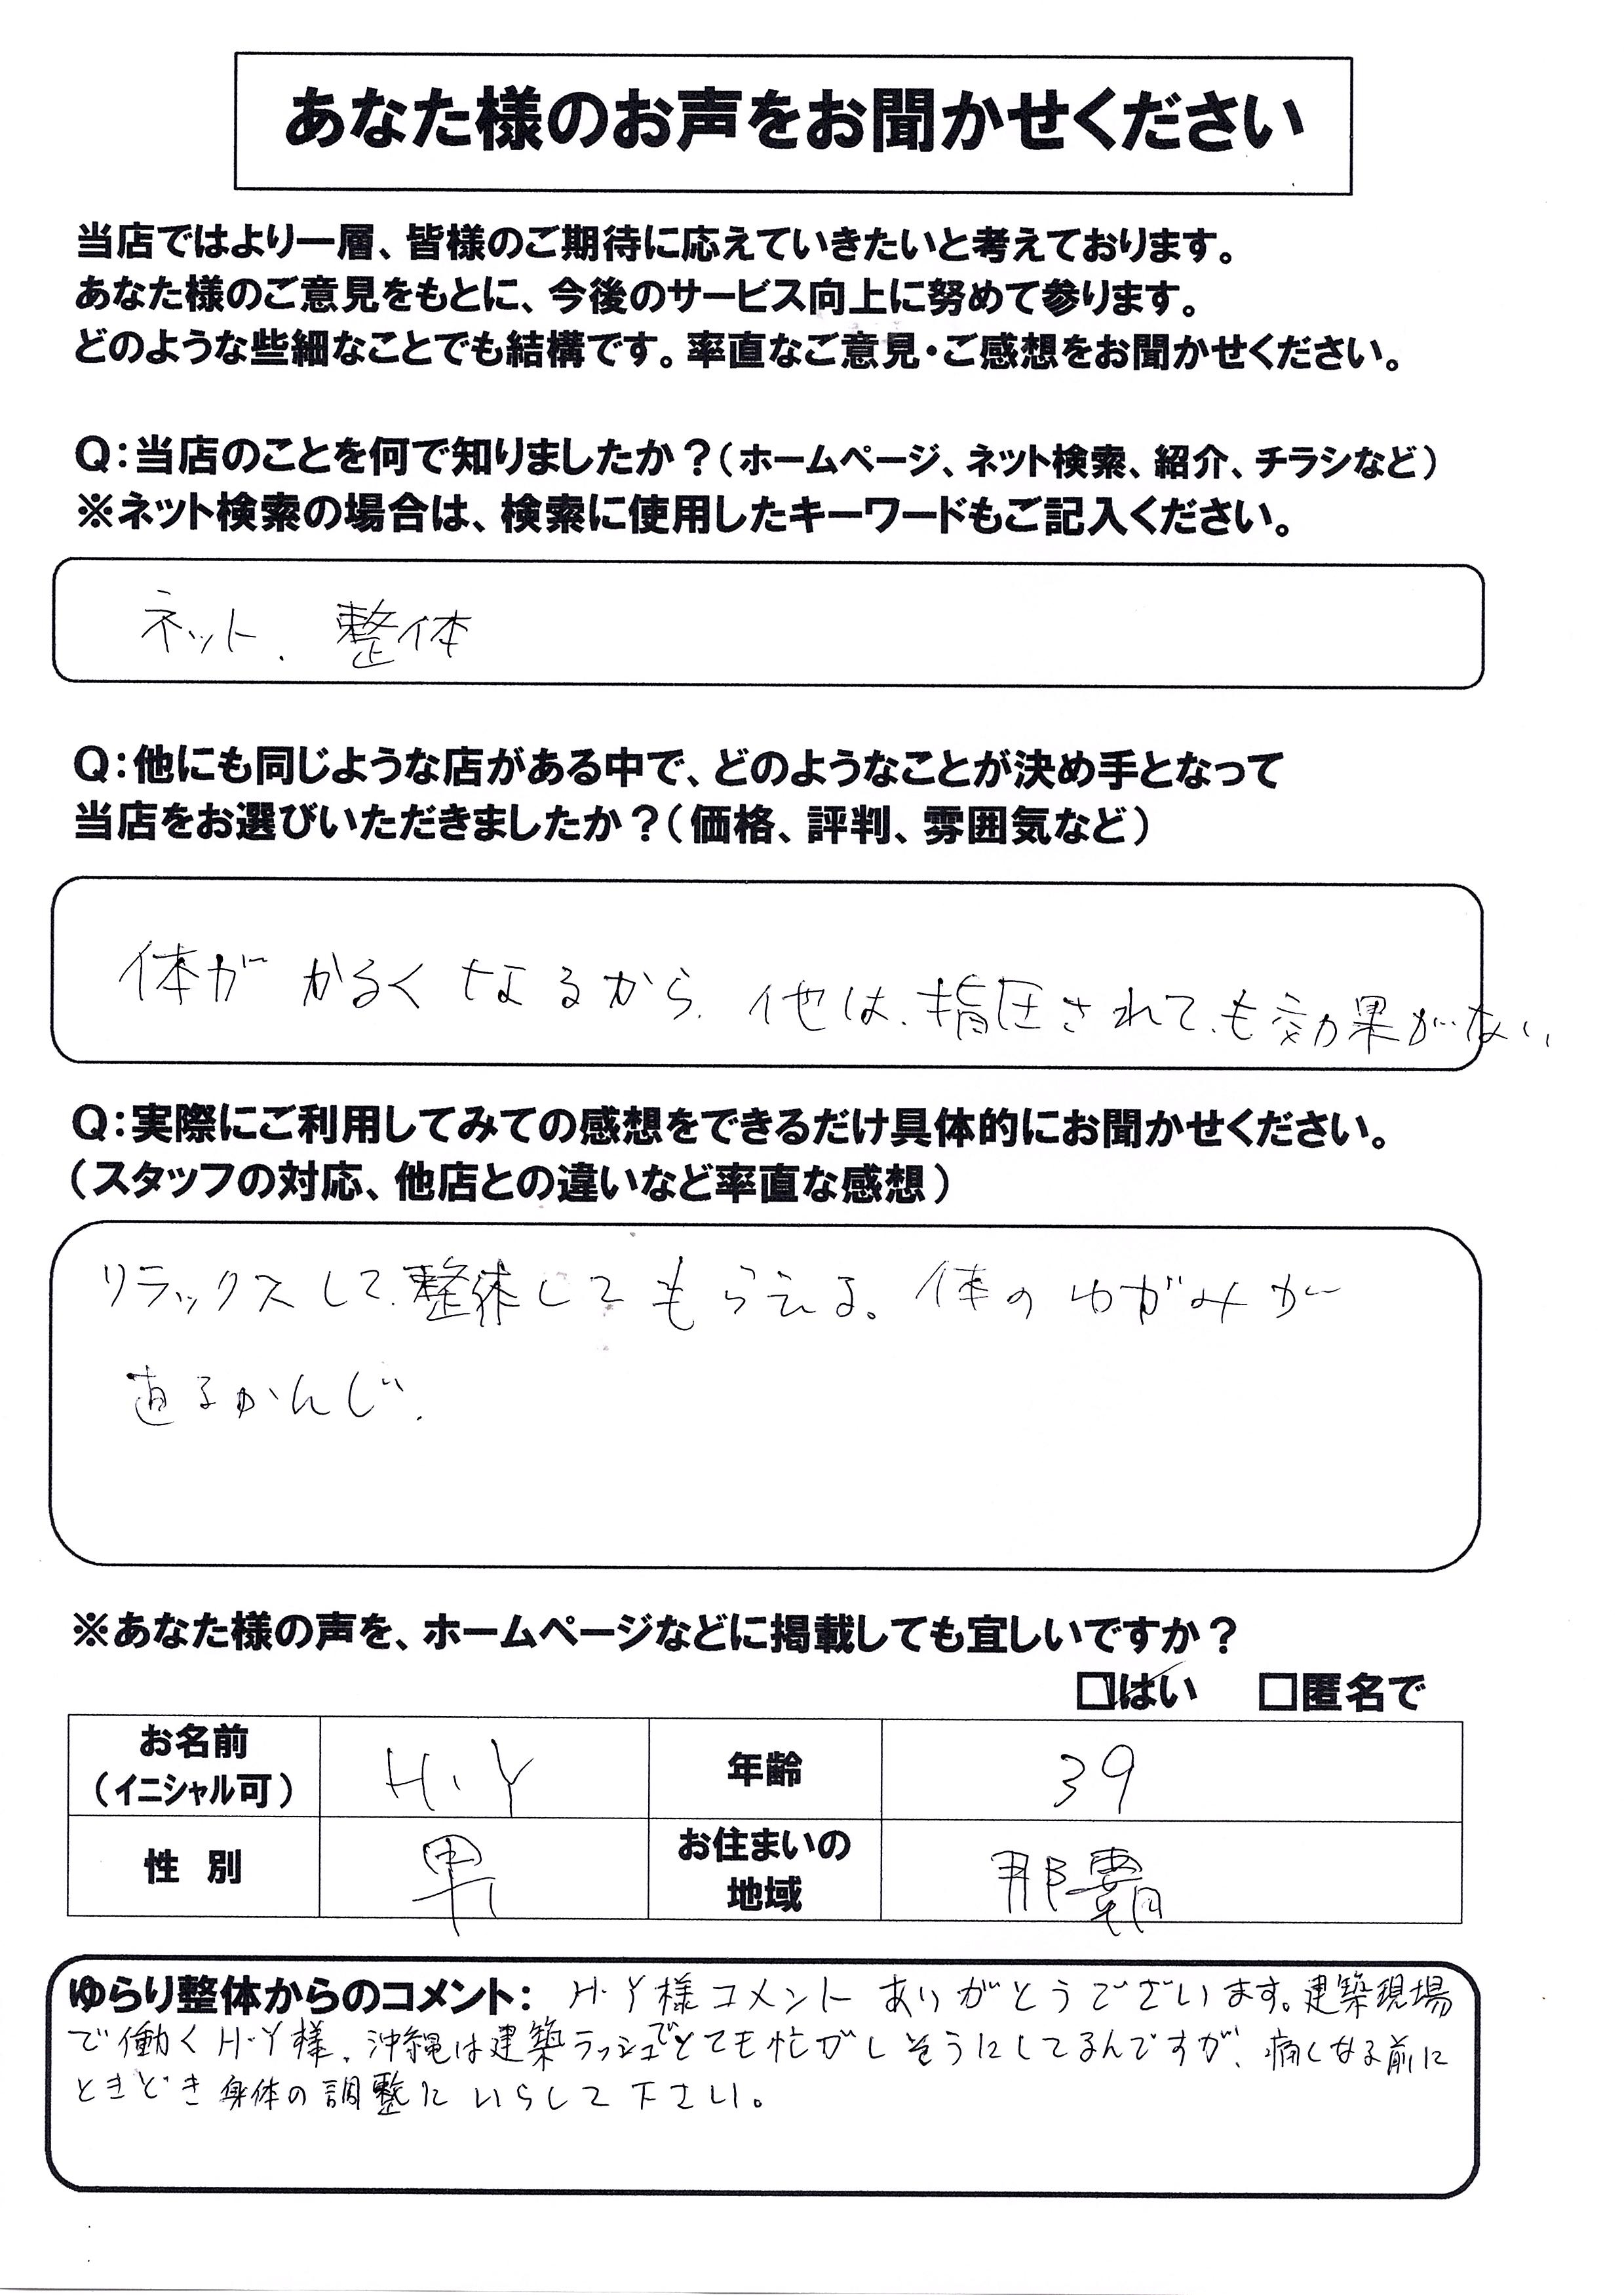 あなた様のお声をお聞かせください
当店ではより一層、皆様のご期待に応えていきたいと考えております。
あなた様のご意見をもとに、今後のサービス向上に努めて参ります。
どのような些細なことでも結構です。率直なご意見・ご感想をお聞かせください。
Q:当店のことを何で知りましたか？(ホームページ、ネット検索、紹介、チラシなど)
※ネット検索の場合は、検索に使用したキーワードもご記入ください。
ネット. 整体
Q:他にも同じような店がある中で、どのようなことが決め手となって
当店をお選びいただきましたか？(価格、評判、雰囲気など)
体が かるく なるから. 他は、指圧されても効果がない
Q:実際にご利用してみての感想をできるだけ具体的にお聞かせください。
(スタッフの対応、他店との違いなど率直な感想)
リラックスして、整体してもらえる。体のゆがみが
直るかんじ.
※あなた様の声を、ホームページなどに掲載しても宜しいですか？
□はい □匿名で
お名前
(イニシャル可) H.Y 年齢 39
性 別 男 お住まいの
地域 那覇
ゆらり整体からのコメント: H.Y様コメントありがとうございます。建築現場
で働くH.Y様、沖縄は建築ラッシュでとても忙がしそうにしてるんですが、痛くなる前に
ときどき身体の調整にいらして下さい。